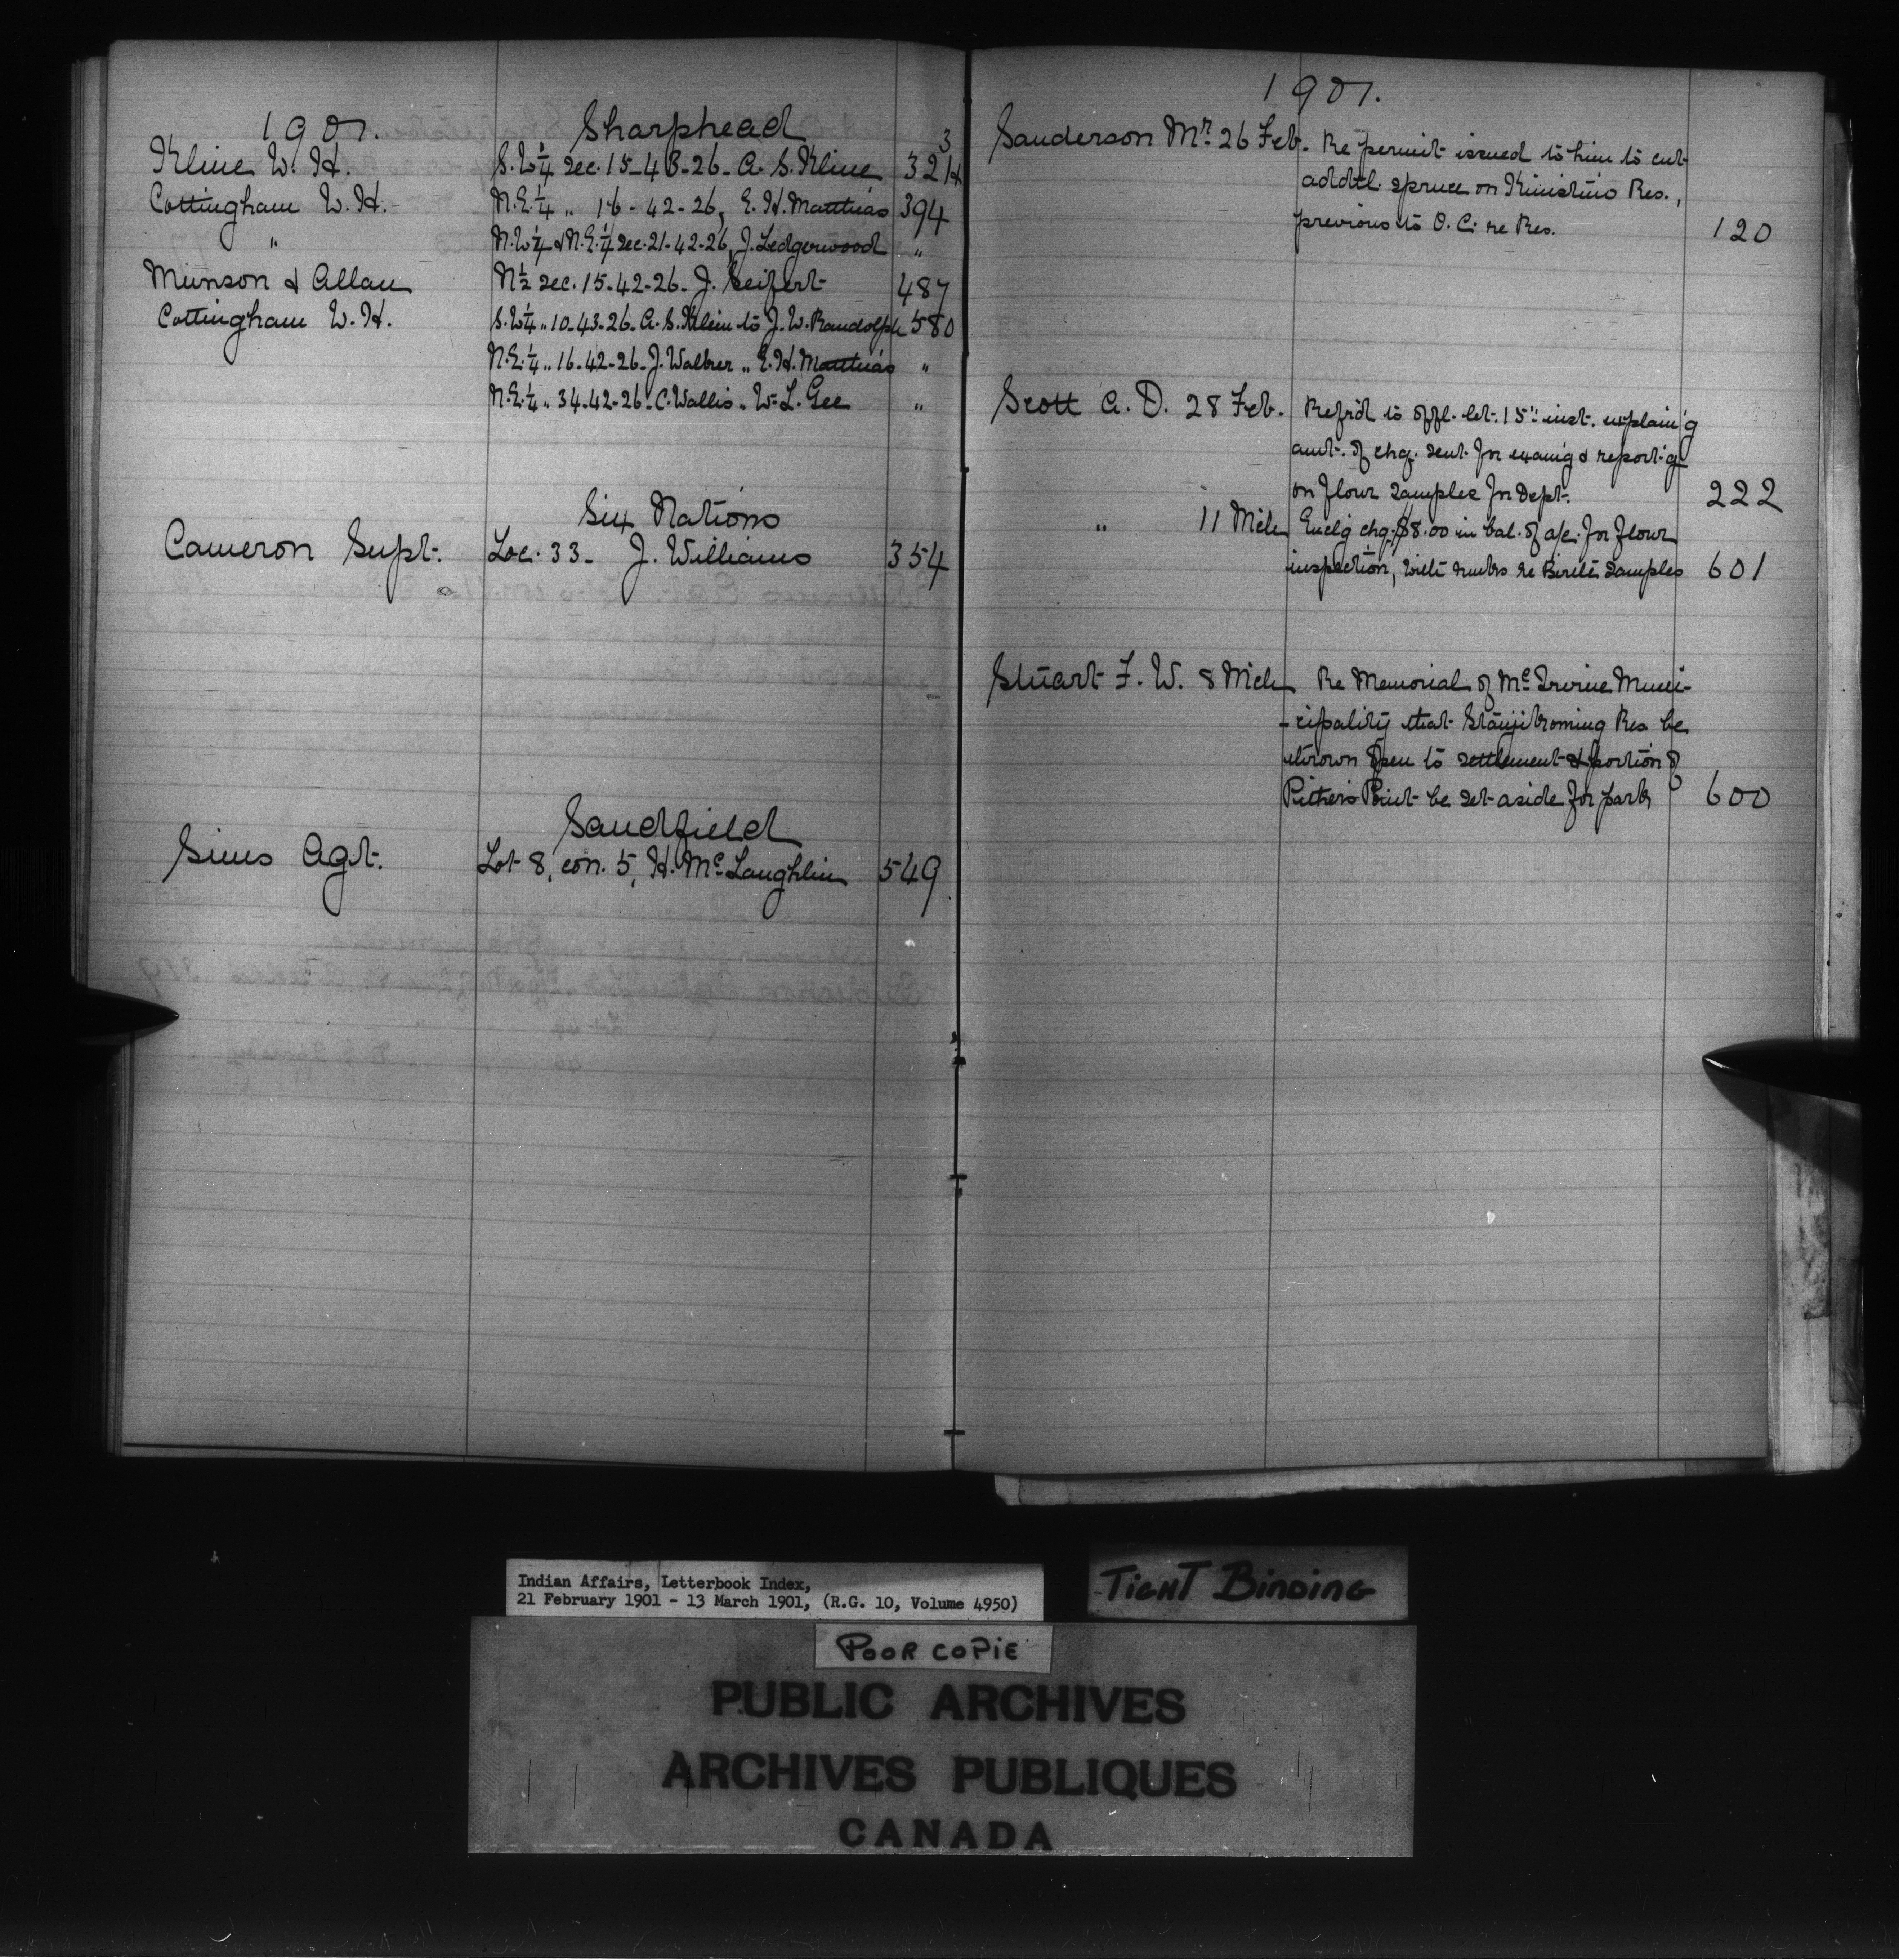 1901. Sharphead
Kline W. H. S.W¼ Sec. 15-43-26. A. S. Kline 321
Cottingham W. H. N.E.¼ „ 16-42-26, E. H. Matthias 394
„ N.W¼ & N.E.¼ Sec. 21-42-26, J. Ledgerwood „
Munson & Allan N½ sec. 15-42-26. J. Seifert 487
Cottingham W. H. S.W¼ „ 10-43-26. A. S. Klein to J. W. Randolph 580
N.E.¼ „ 16-42-26. J. Walker „ E. H. Matthias „
N.E.¼ „ 34-42-26. C. Wallis „ W. L. Gee „
Six Nations
Cameron Supt. Loc. 33. J. Williams 354
Sandfield
Sims Agt. Lot 8, con. 5, H. Mc Laughlin 549
1901.
Sanderson Mr. 26 Feb. Re permit issued to him to cut
addtl. spruce on Kinistino Res.,
previous to O. C. re Res. 120
Scott A. D. 28 Feb. Refrd to offl. let. 15" inst. explain'g
amt. of chq. sent for examg & report'g
on flour samples for Dept. 222
„ 11 Mch Enclg chq. $8.00 in bal. of a/c. for flour
inspection, with re Birtle samples 601
Stuart F. W. 8 Mch Re Memorial of Mc Irvine Muni-
-cipality that Res be
thrown open to settlement & portion of
Pithers Point be set aside for park 600
Indian Affairs, Letterbook Index,
21 February 1901 - 13 March 1901, (R.G. 10, Volume 4950)
TIGHT BINDING
POOR COPIE
PUBLIC ARCHIVES
ARCHIVES PUBLIQUES
CANADA